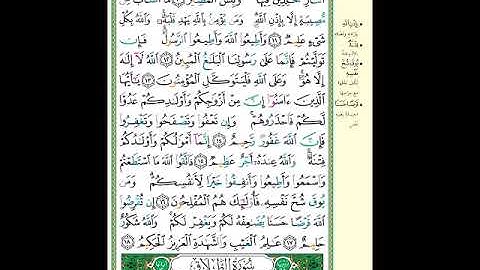 النَّارِ خَالِدِينَ فِيهَا وَبِئْسَ الْمَصِيرُ ۝١٠ مَا أَصَابَ مِن
مُّصِيبَةٍ إِلَّا بِإِذْنِ اللَّهِ وَمَن يُؤْمِن بِاللَّهِ يَهْدِ قَلْبَهُ وَاللَّهُ بِكُلِّ
شَيْءٍ عَلِيمٌ ۝١١ وَأَطِيعُوا اللَّهَ وَأَطِيعُوا الرَّسُولَ فَإِن
تَوَلَّيْتُمْ فَإِنَّمَا عَلَىٰ رَسُولِنَا الْبَلَاغُ الْمُبِينُ ۝١٢ اللَّهُ لَا إِلَٰهَ
إِلَّا هُوَ وَعَلَى اللَّهِ فَلْيَتَوَكَّلِ الْمُؤْمِنُونَ ۝١٣ يَا أَيُّهَا
الَّذِينَ ءَامَنُوا إِنَّ مِنْ أَزْوَاجِكُمْ وَأَوْلَادِكُمْ عَدُوًّا
لَّكُمْ فَاحْذَرُوهُمْ وَإِن تَعْفُوا وَتَصْفَحُوا وَتَغْفِرُوا
فَإِنَّ اللَّهَ غَفُورٌ رَّحِيمٌ ۝١٤ إِنَّمَا أَمْوَالُكُمْ وَأَوْلَادُكُمْ
فِتْنَةٌ وَاللَّهُ عِندَهُ أَجْرٌ عَظِيمٌ ۝١٥ فَاتَّقُوا اللَّهَ مَا اسْتَطَعْتُمْ
وَاسْمَعُوا وَأَطِيعُوا وَأَنفِقُوا خَيْرًا لِّأَنفُسِكُمْ وَمَن
يُوقَ شُحَّ نَفْسِهِ فَأُولَٰئِكَ هُمُ الْمُفْلِحُونَ ۝١٦ إِن تُقْرِضُوا
اللَّهَ قَرْضًا حَسَنًا يُضَاعِفْهُ لَكُمْ وَيَغْفِرْ لَكُمْ وَاللَّهُ شَكُورٌ
حَلِيمٌ ۝١٧ عَالِمُ الْغَيْبِ وَالشَّهَادَةِ الْعَزِيزُ الْحَكِيمُ ۝١٨
سُورَةُ الطَّلَاقِ